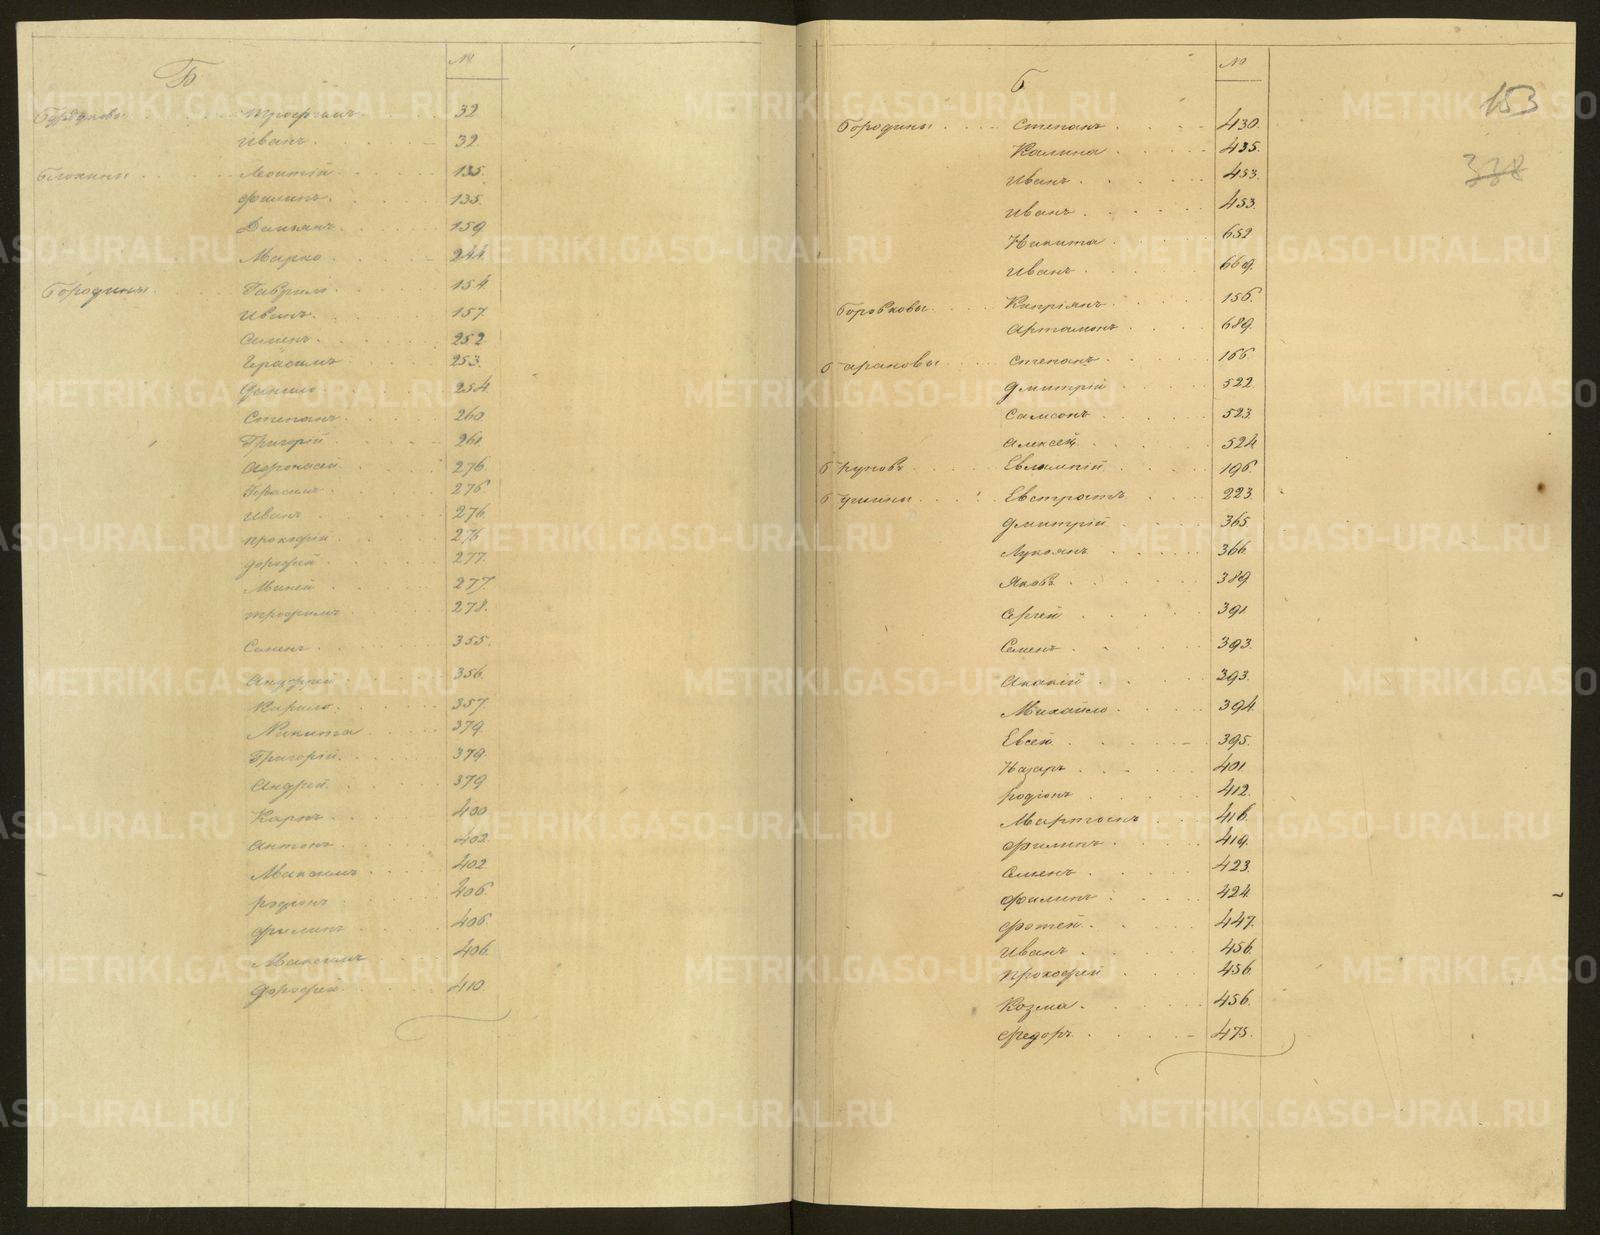 Б
№
Трофимъ 32
Иванъ 32
Блохины 135.
Филипъ 135.
Демьянъ 159
Марко 244.
Бородины Гаврило 154
Иванъ 157
Семенъ 252
Герасимъ 253.
Данило 254
Степанъ 260
Григорій 261
Афонасей 276.
Герасимъ 276
Иванъ 276
Прокофій 276
Дорофей 277.
Миней 277.
Трофимъ 278.
Семенъ 355.
Андрей 356.
Кирило 357.
Никита 379
Григорій 379
Андрей 379
Карпъ 400
Антонъ 402
Максимъ 402
Родіонъ 406
Филипъ 406.
Максимъ 406.
Дорофей 410.
Б
№
153
338
Бородины Степанъ 430.
Калина 435.
Иванъ 453.
Иванъ 453.
Никита 652
Иванъ 669.
Боровковы Кипріянъ 156.
Артамонъ 689.
Барановы Степанъ 166.
Дмитрій 522.
Самсонъ 523.
Алексей 524
Евлампій 196.
Евстратъ 223.
Дмитрій 365
Лукоянъ 366.
Яковъ 389.
Сергей 391
Семенъ 393.
Ананій 393.
Михайло 394.
Евсей 395.
Назаръ 401.
Родіонъ 412.
Мартынъ 416.
Филипъ 419.
Семенъ 423.
Филипъ 424.
Фотей 447.
Иванъ 456.
Прокофей 456.
Козма 456.
Федоръ 475.
METRIKI.GASO-URAL.RU